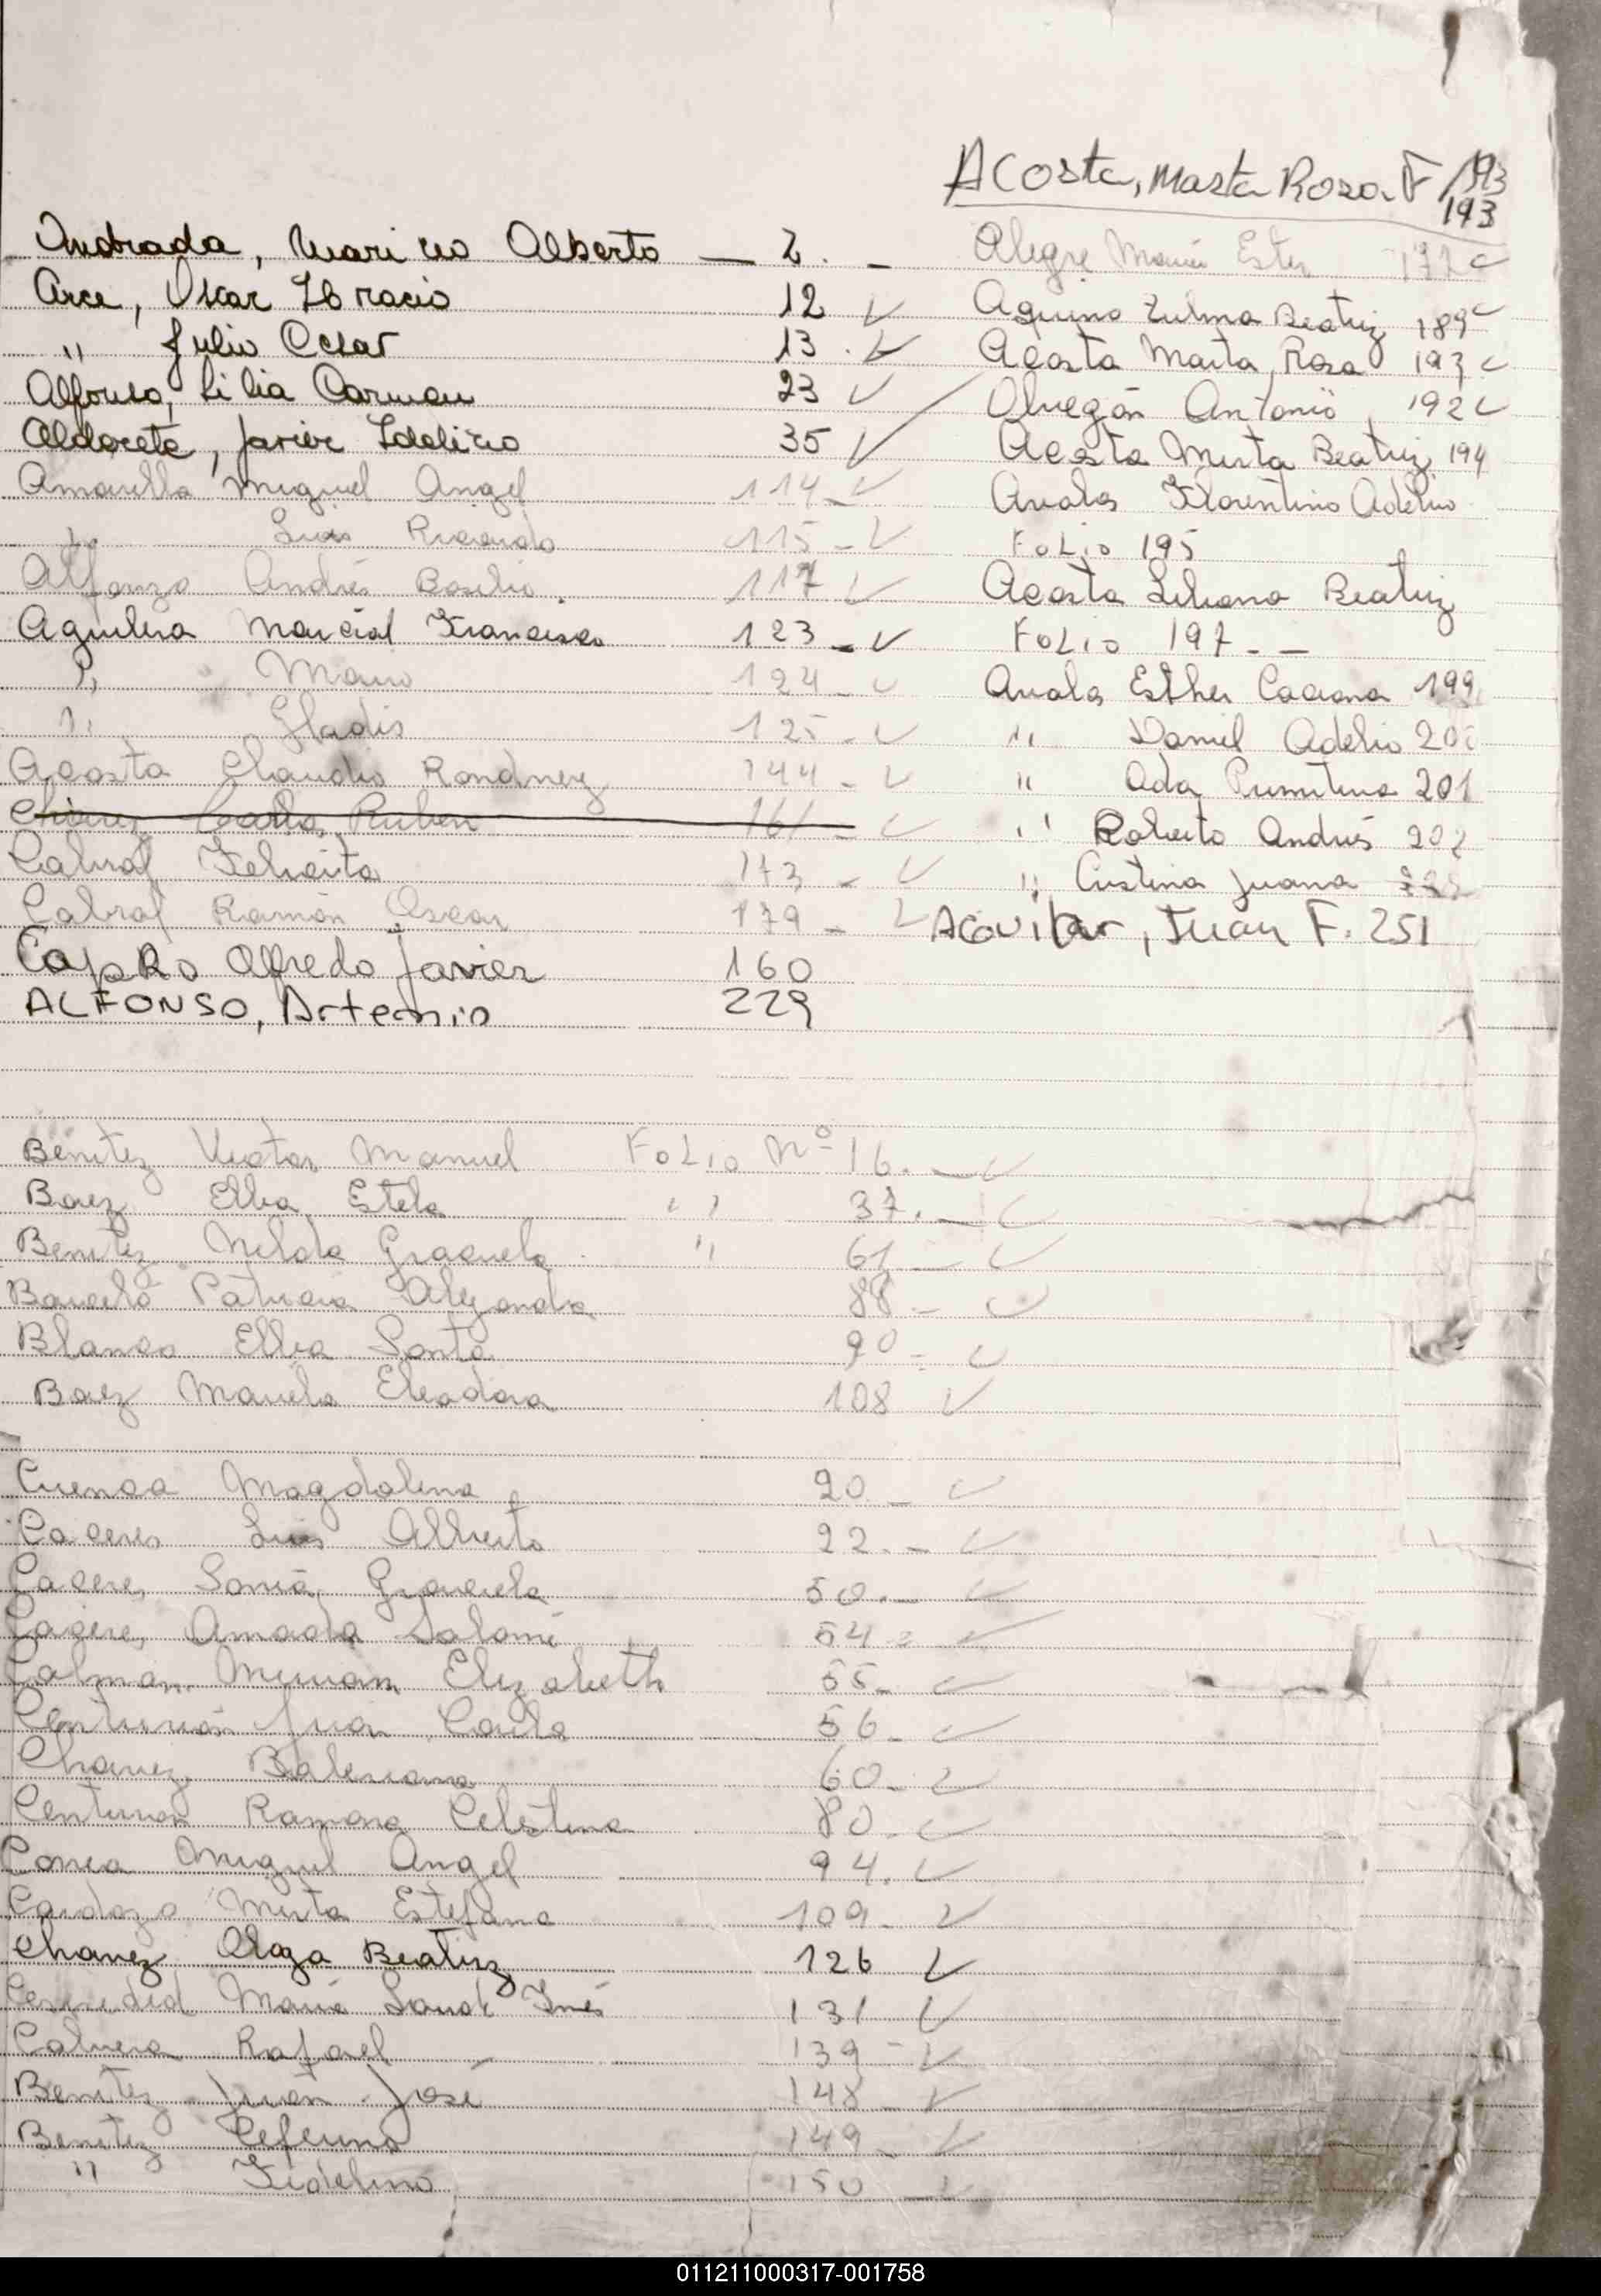 Acosta, Marta Rosa. F/193
193
Andrada, Mauricio Alberto — 2. –
Arce, Oscar Horacio 12 ✓
" Julio Cesar 13. ✓
Alfonso, Lilia Carmen 23 ✓
Aldorete, Javier Idelicio 35 ✓
Amarilla Miguel Angel 114 - ✓
" Luis Ricardo 115 - ✓
Alfonzo Andrés Basilio. 117 ✓
Aguilera Marcial Francisco 123 - ✓
" Mario 124 - ✓
" Gladis 125 - ✓
Acosta Claudio Rondney 144 - ✓
Chavez Carlos Ruben 161 - ✓
Cabral Felicita 173 - ✓
Cabral Ramón Oscar 179 - ✓
Cappo Alfredo Javier 160
ALFONSO, Artemio 229
Alegre María Ester 177 ✓
Aquino Zulma Beatriz 189 ✓
Acosta Marta Rosa 193 ✓
Obregón Antonio 192 ✓
Acosta Mirta Beatriz 194
Avalos Florentino Adelio
FoLio 195
Acosta Liliana Beatriz
FoLio 197 - -
Avalos Esther Casiana 199
" Daniel Adelio 200
" Ada Primitiva 201
" Roberto Andrés 202
" Cristina Juana
AGUILAR, Juan F. 251
Benitez Victor Manuel FoLio Nº 16. - ✓
Baez Elba Estela " 37. - ✓
Benitez Nelida Graciela " 61 - ✓
Barceló Patricia Alejandra 88 - ✓
Blanco Elba Santa 90 - ✓
Baez Mariela Eleodora 108 ✓
Cuenca Magdalena 20 - ✓
Caceres Luis Alberto 22. - ✓
Caceres Sonia Graciela 50. - ✓
Caceres Amada Salomé 54 - ✓
Colman Miriam Elizabeth 55 - ✓
Centurión Juan Carlos 56 - ✓
Chavez Baleriana 60 - ✓
Centurion Ramona Celestina 80 - ✓
Correa Miguel Angel 94. ✓
Cardozo Mirta Estefana 109 - ✓
Chavez Olga Beatriz 126 ✓
María Inés 131 ✓
Cabrera Rafael 139 - ✓
Benitez Juan José 148 - ✓
Benitez Ceferino 149 - ✓
" Fidelino 150 - ✓
011211000317-001758